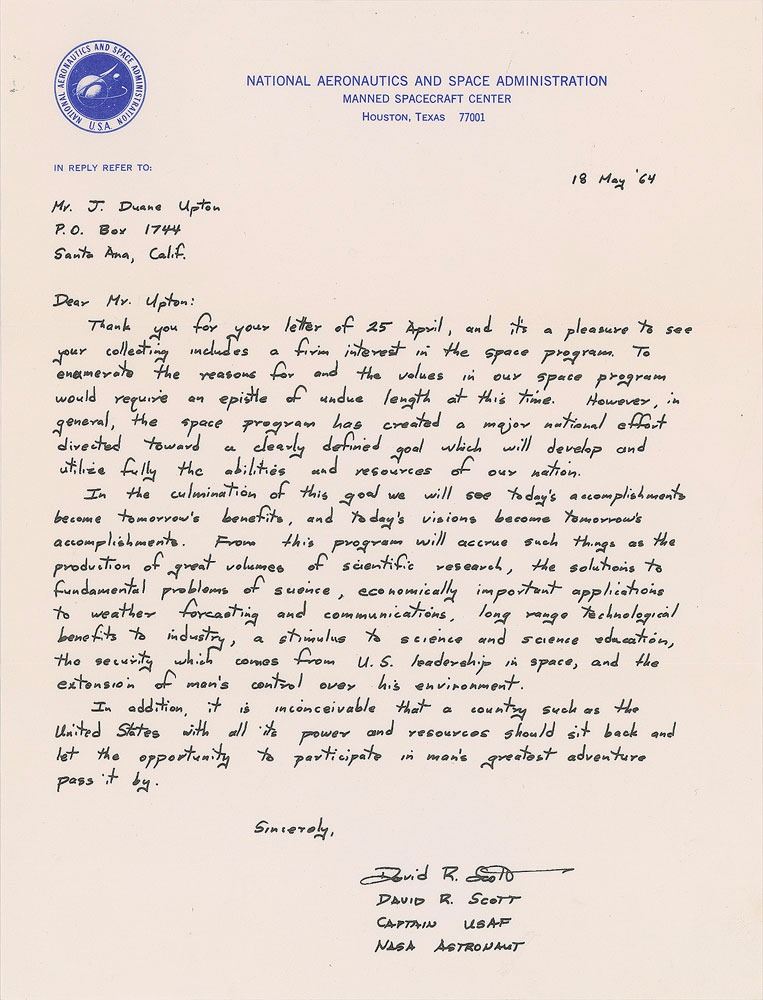 NATIONAL AERONAUTICS AND SPACE ADMINISTRATION
U.S.A.
NATIONAL AERONAUTICS AND SPACE ADMINISTRATION
MANNED SPACECRAFT CENTER
HOUSTON, TEXAS 77001
IN REPLY REFER TO:
18 May '64
Mr. J. Duane Upton
P.O. Box 1744
Santa Ana, Calif.
Dear Mr. Upton:
Thank you for your letter of 25 April, and it's a pleasure to see
your collecting includes a firm interest in the space program. To
enamerate the reasons for and the values in our space program
would require an epistle of undue length at this time. However, in
general, the space program has created a major national effort
directed toward a clearly defined goal which will develop and
utilize fully the abilities and resources of our nation.
In the culmination of this goal we will see today's accomplishments
become tomorrow's benefits, and today's visions become tomorrow's
accomplishments. From this program will accrue such things as the
production of great volumes of scientific research, the solutions to
fundamental problems of science, economically important applications
to weather forcasting and communications, long range technological
benefits to industry, a stimulus to science and science education,
the security which comes from U.S. leadership in space, and the
extension of man's control over his environment.
In addition, it is inconceivable that a country such as the
United States with all its power and resources should sit back and
let the opportunity to participate in man's greatest adventure
pass it by.
Sincerely,
David R. Scott
DAVID R. SCOTT
CAPTAIN USAF
NASA ASTRONAUT